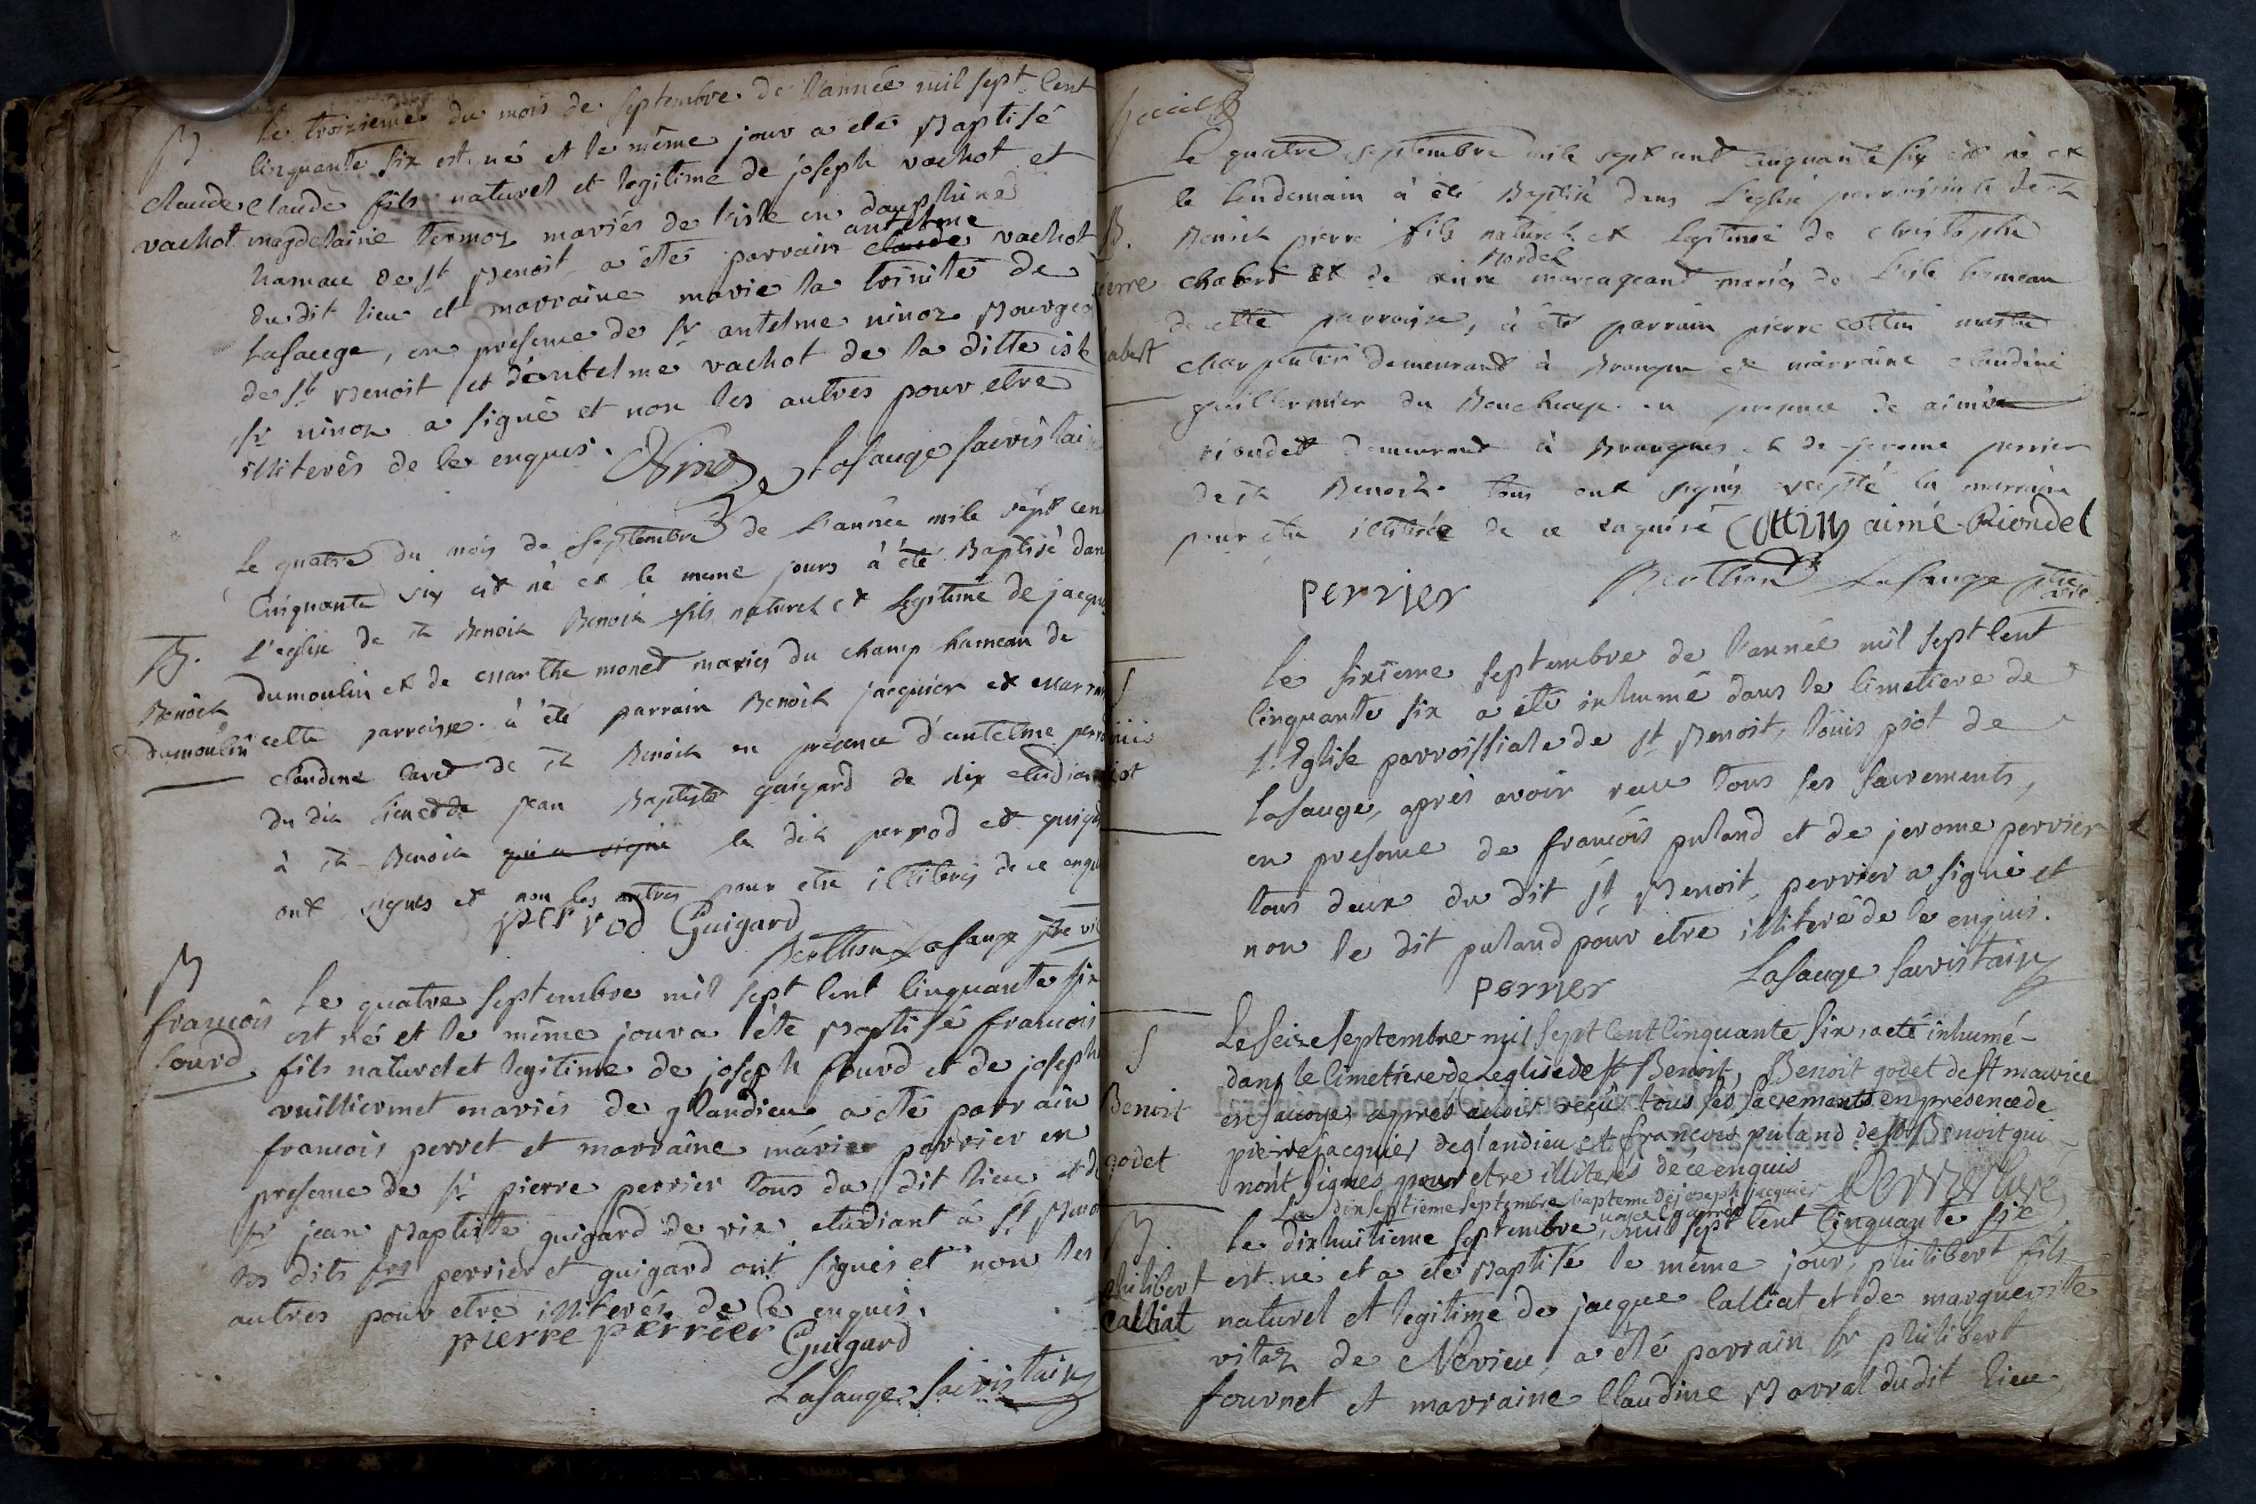 le troizieme du mois de septembre de l'année mil sept Cent
B. Cinquante six est né et le même jour a été Baptisé
claude claude fils naturel et legitime de joseph vachot et
vachot magdelaine termoz mariés de l'isle en dauphiné
hamau de st Benoit a été parrain claude anthelme vachot
du dit lieu et marraine marie la trinité de
Lasauge, en presence de sr antelme ninoz Bourgeo
de st Benoit et d'antelme vachot de la ditte isle
sr ninoz a signé et non les autres pour etre
illiterés de ce enquis. Ninoz Lasauge sacristai
Le quatre du mois de septembre de l'année mile sept cen
Cinquante six est né et le meme jours à été Baptisé dan
B. L'eglise de st Benoit Benoit fils naturel et Legitime de jacque
Benoit dumoulin et de Marthe monet mariés du champ hameau de
dumoulin cette parroisse. à été parrain Benoit jacquier et Marrai
claudine de st Benoit en présence d'antelme perr
du dit lieu et de jean Baptiste guigard de vix etudiant
à st Benoit qui a signé le dit perrod et guigar
ont signés et non les autres pour etre illiterés de ce enqu
perrod Guigard
Berthon Lasauge ptre vi
B
francois Le quatre septembre mil sept Cent Cinquante six
sourd. est né et le même jour a été Baptisé francois
fils naturel et legitime de joseph sourd et de joseph
vuilliermet mariés de glandieu a été parrain
francois perret et marraine marie perrier en
presence de sr pierre perrier tous du dit lieu et de
sr jean Baptiste guigard de vix etudiant à st Beno
les dits srs perrier et guigard ont signés et non les
autres pour etre illiterés de ce enquis.
pierre perrier Guigard
Lasauge Sacristain
Le quatre septembre mile sept cent cinquante six est né et
le lendemain à été Baptisé dans L'eglise parroissiale de st
B. Benoit pierre fils naturel et Legitime de christophe
ierre chabert et de Bordel marcageant mariés de L'isle hameau
de cette parroisse, à été parrain pierre cottin maitre
abert charpentier demeurant à Brangue et marraine claudine
guillermier du Bouchage en presence de aimé
riondet demeurant à Brangues et de jerome perrier
de st Benoit. tous ont signés excepté la marraine
pour etre illitérée de ce enquise Cottin aimé Riondet
perrier Berthon Lasauge ptre
S Le sixieme septembre de l'année mil sept Cent
Cinquante six a été inhumé dans le Cimetiere de
ouis l'Eglise parroissiale de st Benoit, loüis piot de
iot Lasauge, après avoir reçu tous ses sacrements,
en presence de françois puland et de jerome perrier
tous deux du dit st Benoit, perrier a signé et
non le dit puland pour etre illiteré de ce enquis.
perrier Lasauge sacristain
S Le Seize septembre mil sept cent Cinquante six, a eté inhumé
dans le Cimetiere de leglise de st Benoit, Benoit godet de st maurice
Benoit en savoye, appres avoir reçû tous ses sacrements en présence de
godet pierre jacquier de glandieu et francois puland de st Benoit qui
n'ont signés pour etre illiteres de ce enquis
Le dix septieme septembre bapteme de joseph jacquier
B. Le dixhuitieme septembre mil sept Cent Cinquante six
philibert est né et a été Baptisé le même jour, philibert fils
calliat naturel et legitime de jacque Calliat et de marguerite
vitoz de Nevieu, a été parrain sr philibert
fournet et marraine Claudine Barral dudit lieu